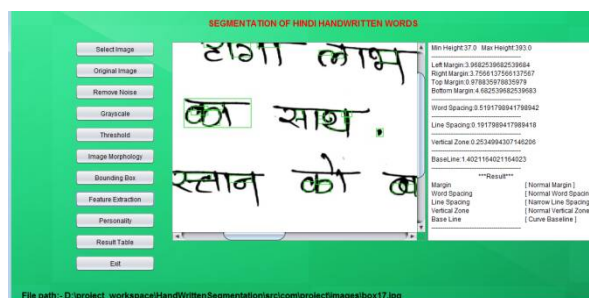 SEGMENTATION OF HINDI HANDWRITTEN WORDS
Select Image
Original Image
Remove Noise
Grayscale
Threshold
Image Morphology
Bounding Box
Feature Extraction
Personality
Result Table
Exit
लाभ
का साथ .
स्थान को
Min Height:37.0 Max Height:393.0
Left Margin:3.9682539682539684
Right Margin:3.7566137566137567
Top Margin:0.978835978835979
Bottom Margin:4.682539682539683
Word Spacing:0.5191798941798942
Line Spacing:0.1917989417989418
Vertical Zone:0.2534994307146206
BaseLine:1.4021164021164023
***Result***
Margin [ Normal Margin ]
Word Spacing [ Normal Word Spacing
Line Spacing [ Narrow Line Spacing
Vertical Zone [ Normal Vertical Zone
Base Line [ Curve Baseline ]
File path:- D:\project_workspace\HandWrittenSegmentation\src\com\project\images\box17.jpg